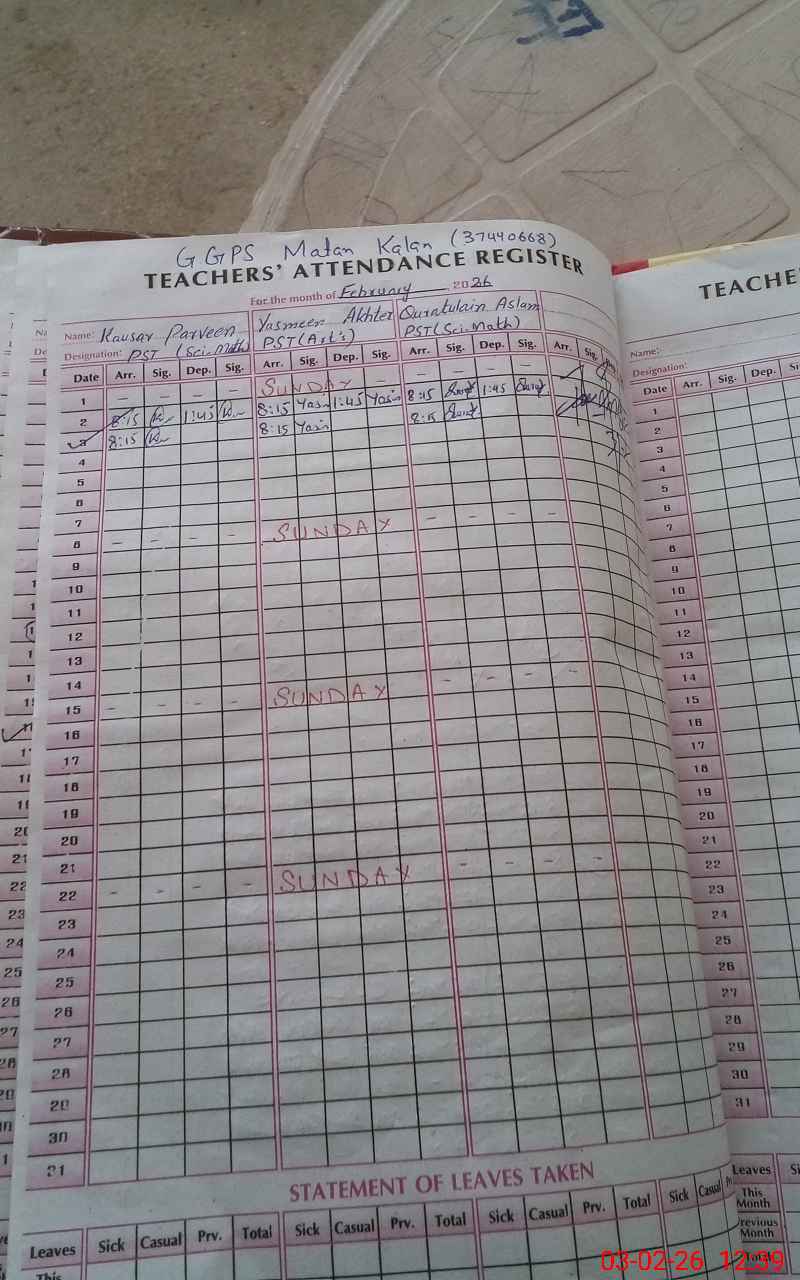 GGPS Matan Kalan (37440668)
TEACHERS' ATTENDANCE REGISTER
For the month of February 2026
Name: Kausar Parveen Yasmeen Akhter Quratulain Aslam
Designation: PST (Sci. Math) PST (Art's) PST (Sci. Math)
Date Arr. Sig. Dep. Sig. Arr. Sig. Dep. Sig. Arr. Sig. Dep. Sig. Arr. Sig.
1 - - - - SUNDAY - - - -
2 8:15 1:45 8:15 Yas 1:45 Yas 8:15 1:45
3 8:15 8:15 Yas 8:15
4
5
6
7
8 - - - - SUNDAY - - - -
9
10
11
12
13
14
15 - - - - SUNDAY - - - -
16
17
18
19
20
21
22 - - - - SUNDAY - - - -
23
24
25
26
27
28
29
30
31
STATEMENT OF LEAVES TAKEN
Leaves Sick Casual Prv. Total Sick Casual Prv. Total Sick Casual Prv. Total Sick Casual
This
TEACHE
Name:
Designation:
Date Arr. Sig. Dep.
1
2
3
4
5
6
7
8
9
10
11
12
13
14
15
16
17
18
19
20
21
22
23
24
25
26
27
28
29
30
31
Leaves
This
Month
revious
Month
Total
03-02-26 12:39